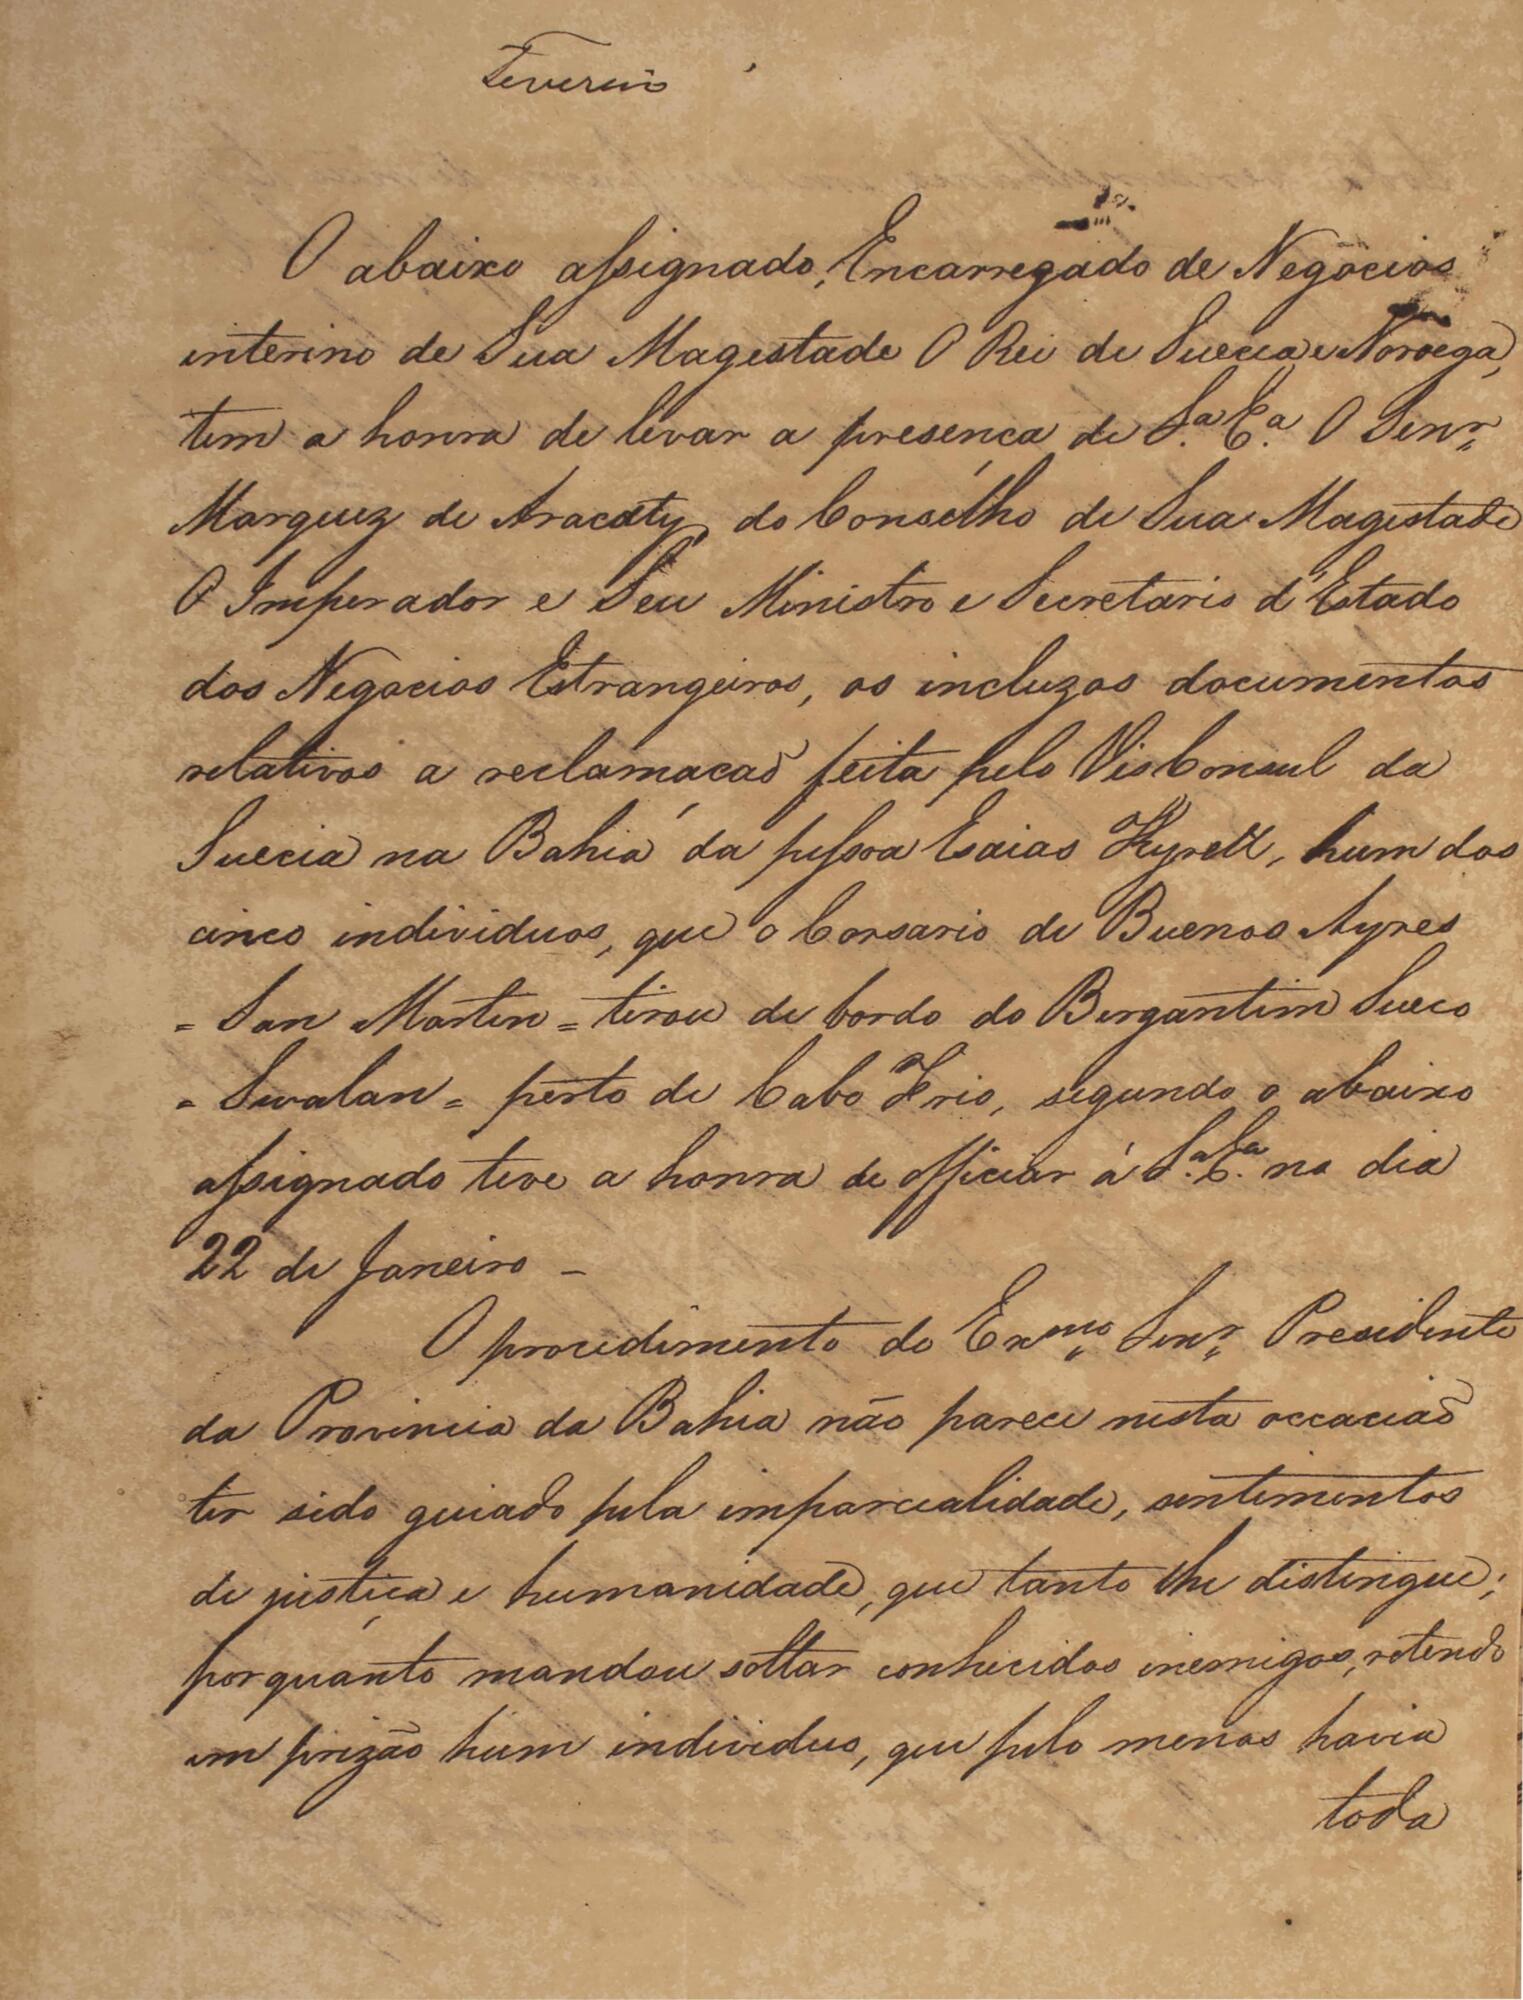 Fevereiro
O abaixo assignado, Encarregado de Negocios
interino de Sua Magestade O Rei de Suecia e Noroega,
tem a honra de levar a presença de S.ª E.ª O Senr.
Marquez de Aracaty, do Conselho de Sua Magestade
O Imperador e Seu Ministro e Secretario d'Estado
dos Negocios Estrangeiros, os incluzos documentos
relativos a reclamaçaõ feita pelo VisConsul da
Suecia na Bahia da pessoa Esaias, hum dos
cinco individuos, que o Corsario de Buenos Ayres
= San Martin = tirou de bordo do Bergantim Sueco
= Swalan = perto de Cabo Frio, segundo o abaixo
assignado teve a honra de officiar á S.ª E.ª no dia
22 de Janeiro –
O procedimento do Exmo. Senr. Presidente
da Provincia da Bahia não parece nesta occaciaõ
ter sido guiado pela imparcealidade, sentimentos
de justiça e humanidade, que tanto lhe distingue;
porquanto mandou soltar conhecidos inemigos, retendo
em prizão hum individuo, que pelo menos havia
toda